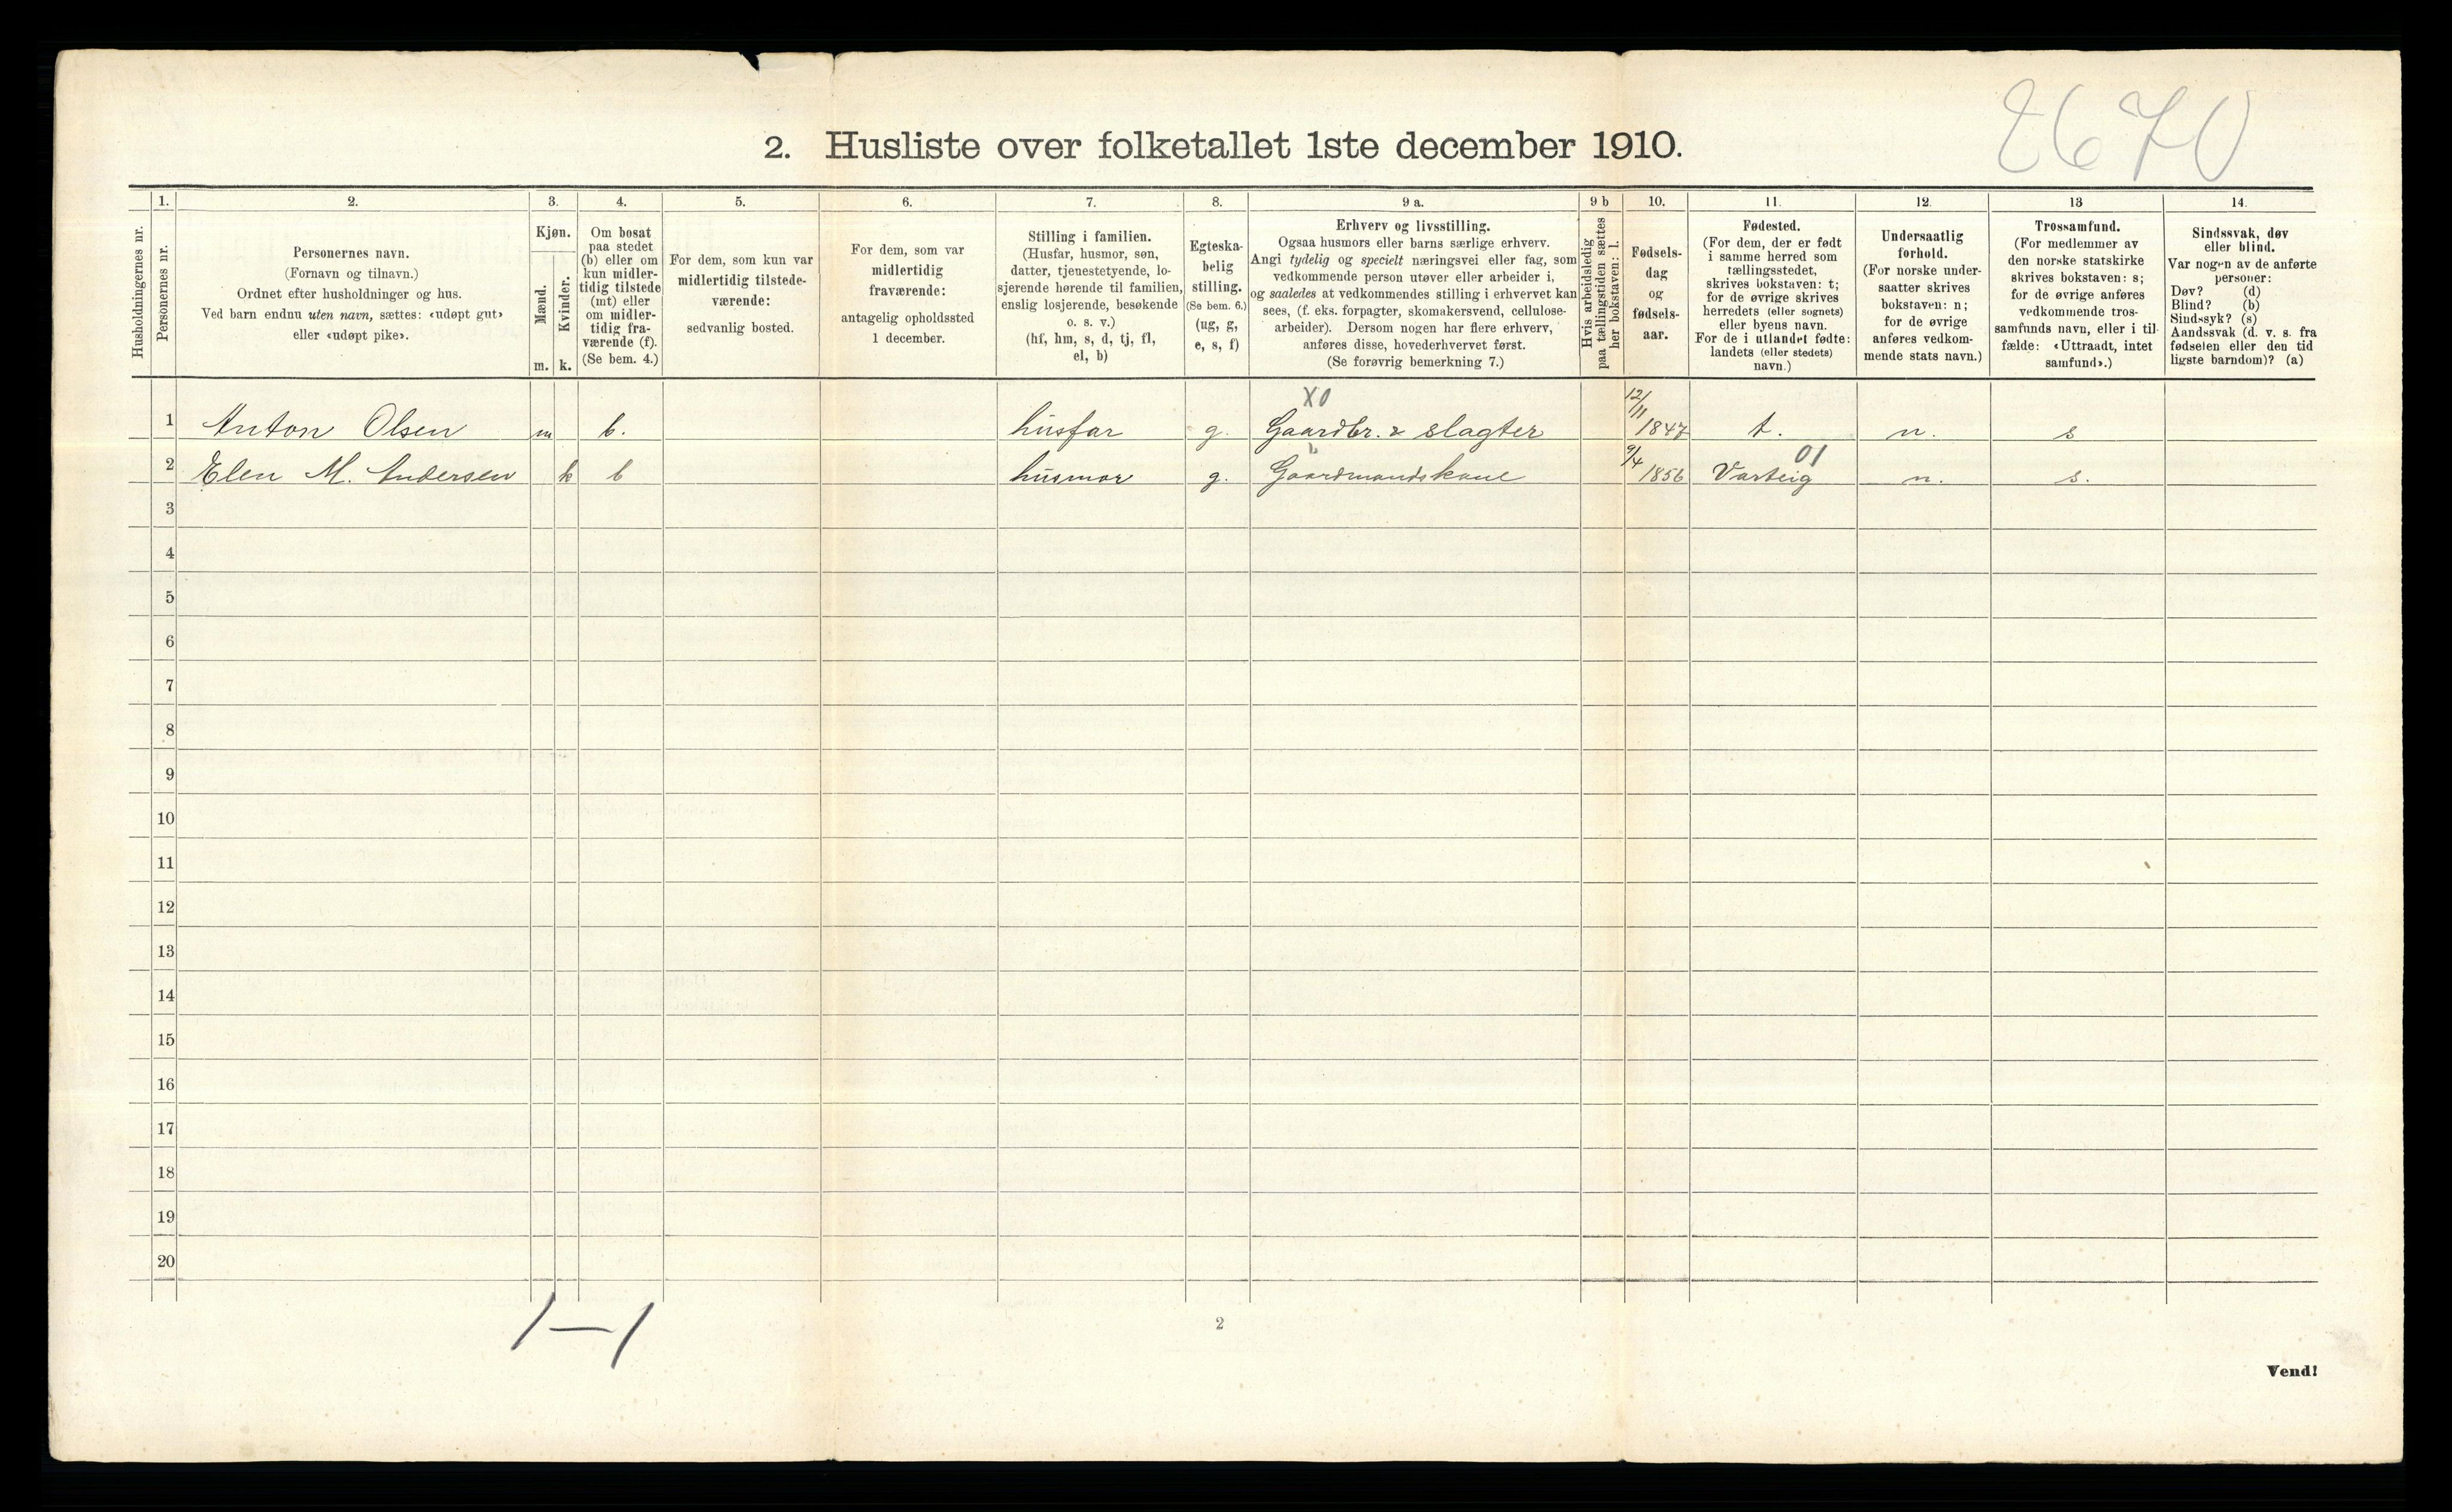 2670
2. Husliste over folketallet 1ste december 1910.
Husholdningernes nr.
1.
Personernes nr.
2.
Personernes navn.
(Fornavn og tilnavn.)
Ordnet efter husholdninger og hus.
Ved barn endnu uten navn, sættes: «udøpt gut»
eller «udøpt pike».
3.
Kjøn.
Mænd.
m.
Kvinder.
k.
4.
Om bosat
paa stedet
(b) eller om
kun midler-
tidig tilstede
(mt) eller
om midler-
tidig fra-
værende (f).
(Se bem. 4.)
5.
For dem, som kun var
midlertidig tilstede-
værende:
sedvanlig bosted.
6.
For dem, som var
midlertidig
fraværende:
antagelig opholdssted
1 december.
7.
Stilling i familien.
(Husfar, husmor, søn,
datter, tjenestetyende, lo-
sjerende hørende til familien,
enslig losjerende, besøkende
o. s. v.)
(hf, hm, s, d, tj, fl,
el, b)
8.
Egteska-
belig
stilling.
(Se bem. 6.)
(ug, g,
e, s, f)
9 a.
Erhverv og livsstilling.
Ogsaa husmors eller barns særlige erhverv.
Angi tydelig og specielt næringsvei eller fag, som
vedkommende person utøver eller arbeider i,
og saaledes at vedkommendes stilling i erhvervet kan
sees, (f. eks. forpagter, skomakersvend, cellulose-
arbeider). Dersom nogen har flere erhverv,
anføres disse, hovederhvervet først.
(Se forøvrig bemerkning 7.)
9 b
Hvis arbeidsledig
paa tællingstiden sættes
her bokstaven: l.
10.
Fødsels-
dag
og
fødsels-
aar.
11.
Fødested.
(For dem, der er født
i samme herred som
tællingsstedet,
skrives bokstaven: t;
for de øvrige skrives
herredets (eller sognets)
eller byens navn.
For de i utlandet fødte:
landets (eller stedets)
navn.)
12.
Undersaatlig
forhold.
(For norske under-
saatter skrives
bokstaven: n;
for de øvrige
anføres vedkom-
mende stats navn.)
13
Trossamfund.
(For medlemmer av
den norske statskirke
skrives bokstaven: s;
for de øvrige anføres
vedkommende tros-
samfunds navn, eller i til-
fælde: «Uttraadt, intet
samfund».)
14.
Sindssvak, døv
eller blind.
Var nogen av de anførte
personer:
Døv? (d)
Blind? (b)
Sindssyk? (s)
Aandssvak (d. v. s. fra
fødselen eller den tid-
ligste barndom)? (a)
X0
1 Anton Olsen m b. husfar g. Gaardbr. & slagter 12/11 1847 t. n. s
01
2 Elen M. Andersen k b husmor g. Gaardmandskone 9/4 1856 Varteig n. s.
3
4
5
6
7
8
9
10
11
12
13
14
15
16
17
18
19
20
1–1
2
Vend!